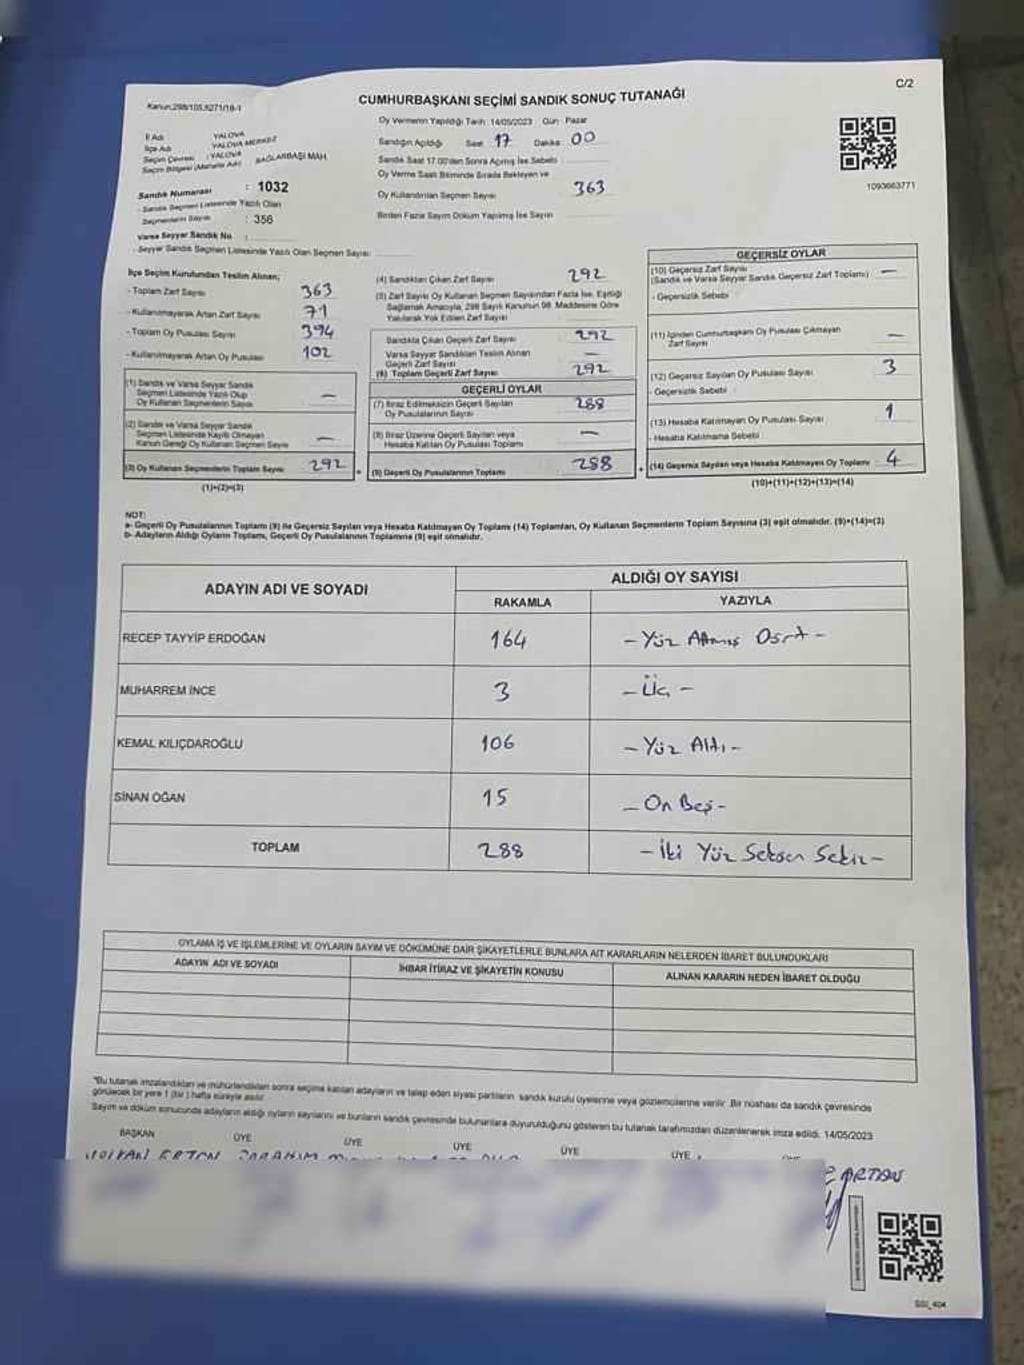 C/2
Kanun:298/105,6271/18-1
CUMHURBAŞKANI SEÇİMİ SANDIK SONUÇ TUTANAĞI
Oy Vermenin Yapıldığı Tarih: 14/05/2023 Gün: Pazar
İl Adı : YALOVA
İlçe Adı : YALOVA MERKEZ
Seçim Çevresi : YALOVA
Seçim Bölgesi (Mahalle Adı) BAĞLARBAŞI MAH.
Sandık Numarası : 1032
- Sandık Seçmen Listesinde Yazılı Olan
Seçmenlerin Sayısı : 356
Varsa Seyyar Sandık No :
- Seyyar Sandık Seçmen Listesinde Yazılı Olan Seçmen Sayısı:
Sandığın Açıldığı Saat 17 Dakika 00
Sandık Saat 17.00'den Sonra Açılmış İse Sebebi
Oy Verme Saati Bitiminde Sırada Bekleyen ve
Oy Kullandırılan Seçmen Sayısı 363
Birden Fazla Sayım Döküm Yapılmış İse Sayısı
1093663771
İlçe Seçim Kurulundan Teslim Alınan;
- Toplam Zarf Sayısı 363
- Kullanılmayarak Artan Zarf Sayısı 71
- Toplam Oy Pusulası Sayısı 394
- Kullanılmayarak Artan Oy Pusulası 102
(1) Sandık ve Varsa Seyyar Sandık
Seçmen Listesinde Yazılı Olup
Oy Kullanan Seçmenlerin Sayısı —
(2) Sandık ve Varsa Seyyar Sandık
Seçmen Listesinde Kayıtlı Olmayan
Kanun Gereği Oy Kullanan Seçmen Sayısı —
(3) Oy Kullanan Seçmenlerin Toplam Sayısı 292
(1)+(2)=(3)
(4) Sandıktan Çıkan Zarf Sayısı 292
(5) Zarf Sayısı Oy Kullanan Seçmen Sayısından Fazla İse, Eşitliği
Sağlamak Amacıyla, 298 Sayılı Kanunun 98. Maddesine Göre
Yakılarak Yok Edilen Zarf Sayısı
Sandıkta Çıkan Geçerli Zarf Sayısı 292
Varsa Seyyar Sandıktan Teslim Alınan
Geçerli Zarf Sayısı —
(6) Toplam Geçerli Zarf Sayısı 292
GEÇERLİ OYLAR
(7) İtiraz Edilmeksizin Geçerli Sayılan
Oy Pusulalarının Sayısı 288
(8) İtiraz Üzerine Geçerli Sayılan veya
Hesaba Katılan Oy Pusulaları Toplamı —
(9) Geçerli Oy Pusulalarının Toplamı 288
GEÇERSİZ OYLAR
(10) Geçersiz Zarf Sayısı —
(Sandık ve Varsa Seyyar Sandık Geçersiz Zarf Toplamı)
- Geçersizlik Sebebi
(11) İçinden Cumhurbaşkanı Oy Pusulası Çıkmayan
Zarf Sayısı —
(12) Geçersiz Sayılan Oy Pusulası Sayısı 3
- Geçersizlik Sebebi
(13) Hesaba Katılmayan Oy Pusulası Sayısı 1
- Hesaba Katılmama Sebebi
(14) Geçersiz Sayılan veya Hesaba Katılmayan Oy Toplamı 4
(10)+(11)+(12)+(13)=(14)
NOT:
a- Geçerli Oy Pusulalarının Toplamı (9) ile Geçersiz Sayılan veya Hesaba Katılmayan Oy Toplamı (14) Toplamları, Oy Kullanan Seçmenlerin Toplam Sayısına (3) eşit olmalıdır. (9)+(14)=(3)
b- Adayların Aldığı Oyların Toplamı, Geçerli Oy Pusulalarının Toplamına (9) eşit olmalıdır.
ADAYIN ADI VE SOYADI ALDIĞI OY SAYISI
RAKAMLA YAZIYLA
RECEP TAYYİP ERDOĞAN 164 - Yüz Altmış Dört -
MUHARREM İNCE 3 - Üç -
KEMAL KILIÇDAROĞLU 106 - Yüz Altı -
SİNAN OĞAN 15 - On Beş -
TOPLAM 288 - İki Yüz Seksen Sekiz -
OYLAMA İŞ VE İŞLEMLERİNE VE OYLARIN SAYIM VE DÖKÜMÜNE DAİR ŞİKAYETLERLE BUNLARA AİT KARARLARIN NELERDEN İBARET BULUNDUKLARI
ADAYIN ADI VE SOYADI İHBAR İTİRAZ VE ŞİKAYETİN KONUSU ALINAN KARARIN NEDEN İBARET OLDUĞU
"Bu tutanak imzalandıktan ve mühürlendikten sonra seçime katılan adayların ve talep eden siyasi partilerin sandık kurulu üyelerine veya gözlemcilerine verilir. Bir nüshası da sandık çevresinde
görülecek bir yere 1 (bir) hafta süreyle asılır.
Sayım ve döküm sonucunda adayların aldığı oyların sayılarını ve bunların sandık çevresinde bulunanlara duyurulduğunu gösteren bu tutanak tarafımızdan düzenlenerek imza edildi. 14/05/2023
BAŞKAN ÜYE ÜYE ÜYE ÜYE ÜYE
ARTAN